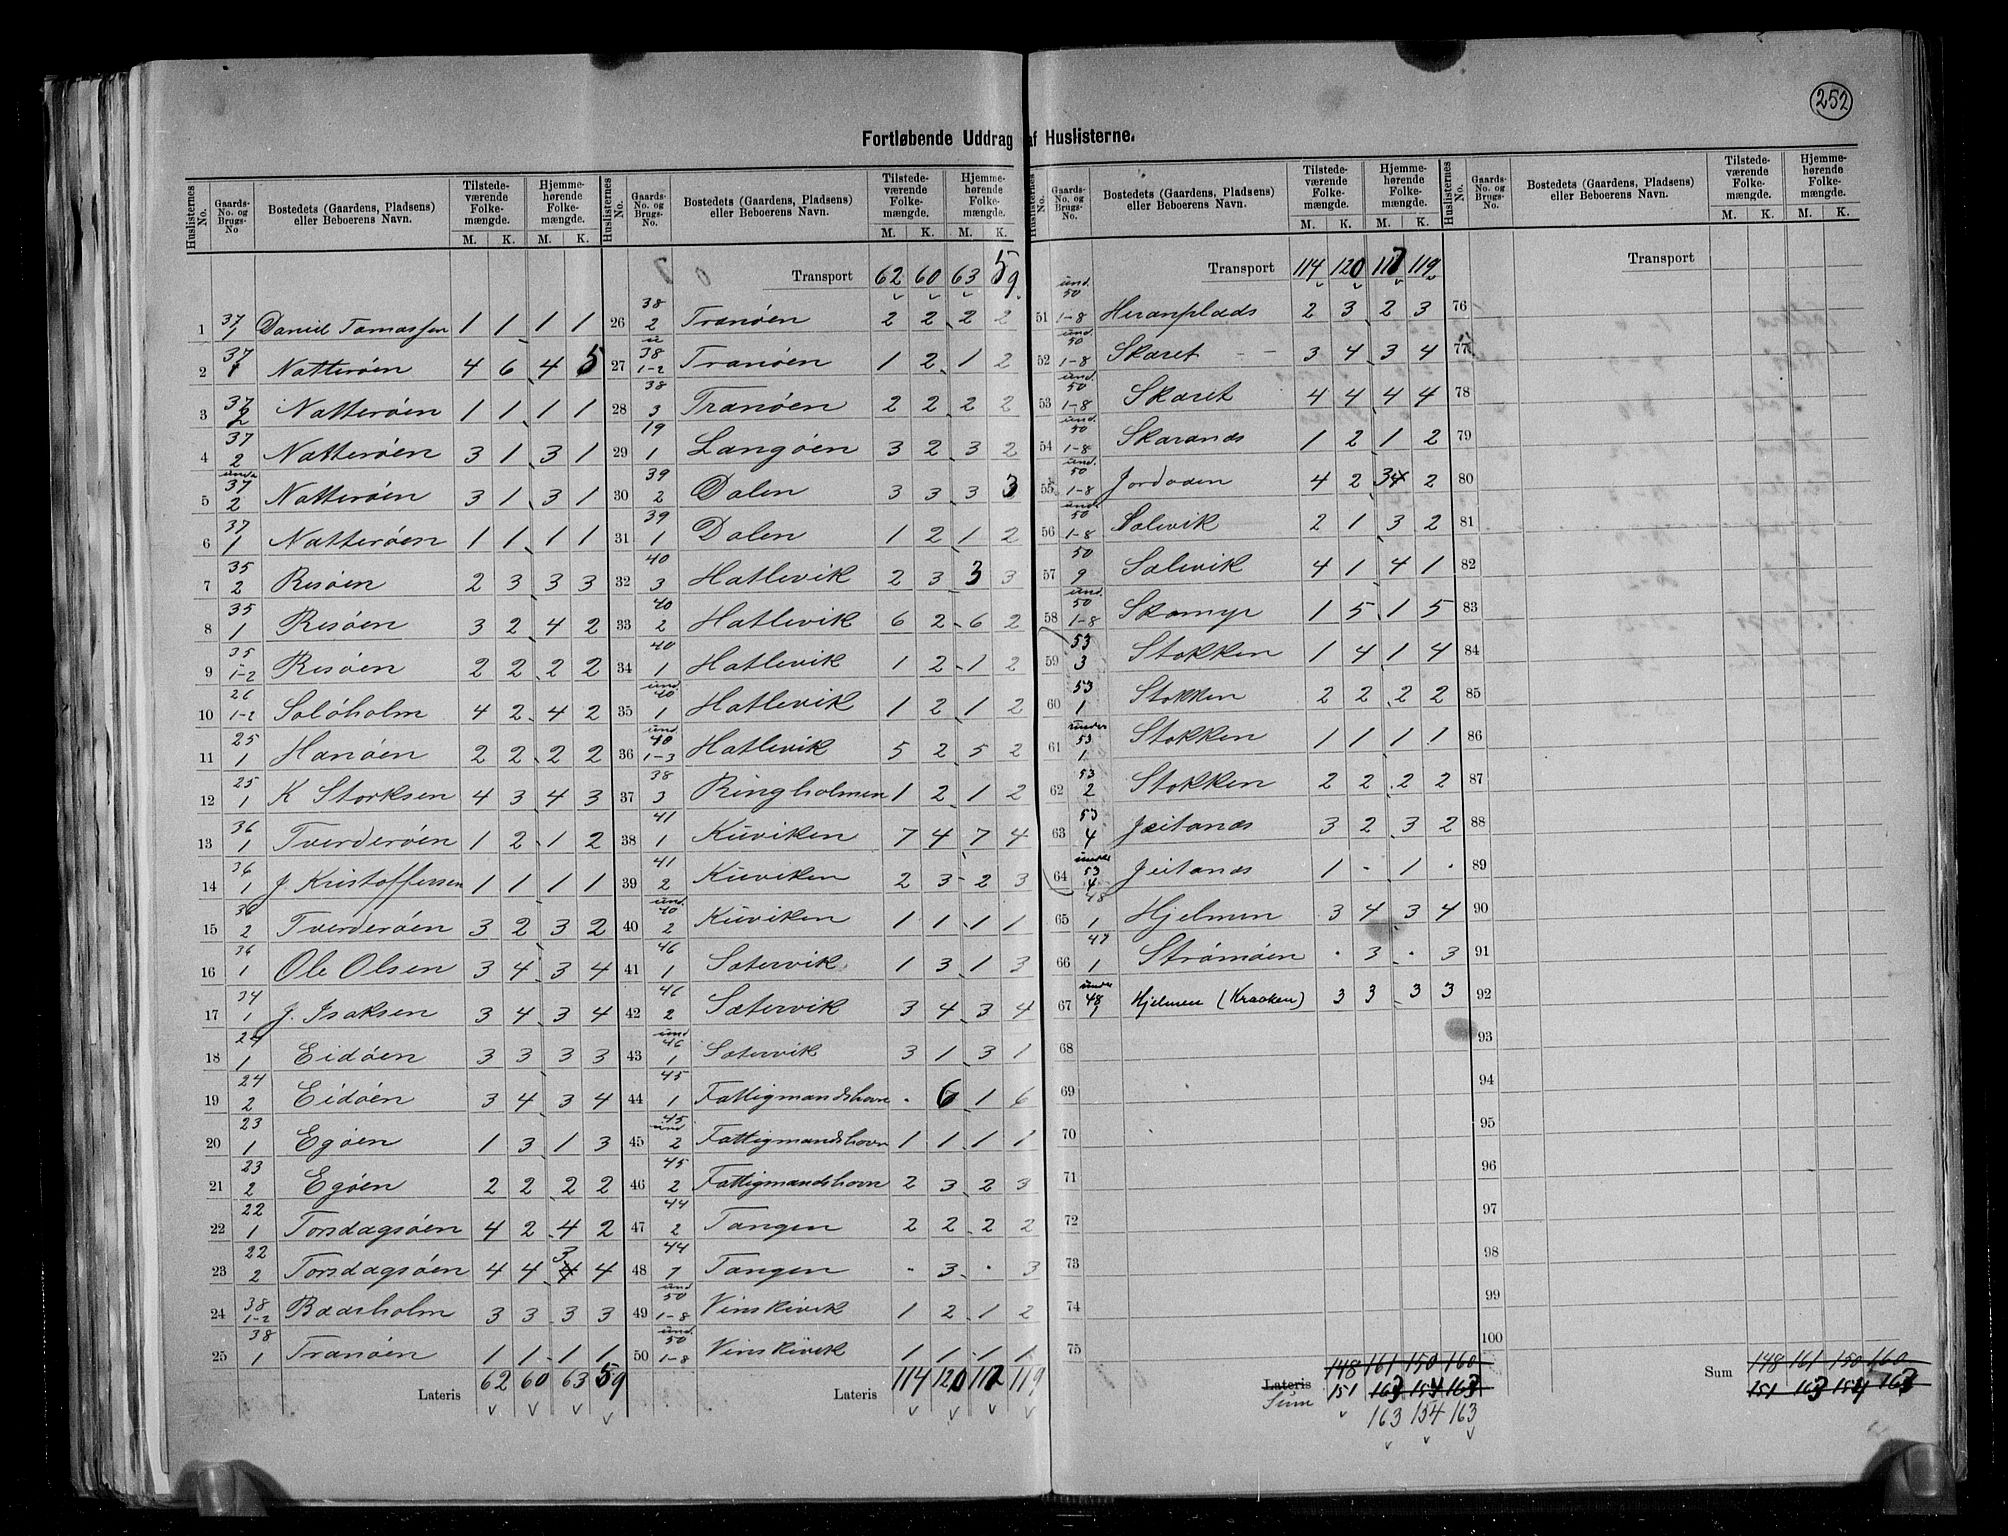 252
Fortløbende Uddrag af Huslisterne.
Huslisternes No. Gaards-No. og Brugs-No Bostedets (Gaardens, Pladsens) eller Beboerens Navn. Tilstedeværende Folkemængde. M. K. Hjemmehørende Folkemængde. M. K.
1 37 1 Daniel Tomassen 1 1 1 1
2 37 1 Natterøen 4 6 4 5
3 37 2 Natterøen 1 1 1 1
4 37 2 Natterøen 3 1 3 1
5 under 37 2 Natterøen 3 1 3 1
6 37 1 Natterøen 1 1 1 1
7 35 2 Risøen 2 3 3 3
8 35 1 Risøen 3 2 4 2
9 35 1-2 Risøen 2 2 2 2
10 26 1-2 Soløholm 4 2 4 2
11 25 1 Hanøen 2 2 2 2
12 25 1 K Storksen 4 3 4 3
13 36 1 Tverderøen 1 2 1 2
14 36 1 J Kristoffersen 1 1 1 1
15 36 2 Tverderøen 3 2 3 2
16 36 1 Ole Olsen 3 4 3 4
17 34 1 J. Isaksen 3 4 3 4
18 24 1 Eidøen 3 3 3 3
19 24 2 Eidøen 3 4 3 4
20 23 1 Egøen 1 3 1 3
21 23 2 Egøen 2 2 2 2
22 22 1 Torsdagsøen 4 2 4 2
23 22 2 Torsdagsøen 4 4 3 4 4
24 38 1-2 Baarholm 3 3 3 3
25 38 1 Tranøen 1 1 1 1
Lateris 62 60 63 59
Huslisternes No. Gaards-No. og Brugs-No. Bostedets (Gaardens, Pladsens) eller Beboerens Navn. Tilstedeværende Folkemængde. M. K. Hjemmehørende Folkemængde. M. K.
Transport 62 60 63 59
26 38 2 Tranøen 2 2 2 2
27 u 38 1-2 Tranøen 1 2 1 2
28 38 3 Tranøen 2 2 2 2
29 19 1 Langøen 3 2 3 2
30 39 2 Dalen 3 3 3 3
31 39 1 Dalen 1 2 1 2
32 40 3 Hatlevik 2 3 3 3
33 40 2 Hatlevik 6 2 6 2
34 40 1 Hatlevik 1 2 1 2
35 und. 40 1 Hatlevik 1 2 1 2
36 und 40 1-3 Hatlevik 5 2 5 2
37 38 3 Ringholmen 1 2 1 2
38 41 1 Kuviken 7 4 7 4
39 41 2 Kuviken 2 3 2 3
40 und. 40 2 Kuviken 1 1 1 1
41 46 1 Satervik 1 3 1 3
42 46 2 Satervik 3 4 3 4
43 und 46 1 Satervik 3 1 3 1
44 45 1 Fattigmandshavn · 6 1 6
45 45 und 2 Fattigmandshavn 1 1 1 1
46 45 2 Fattigmandshavn 2 3 2 3
47 44 2 Tangen 2 2 2 2
48 44 1 Tangen · 3 · 3
49 und 50 1-8 Vinskivik 1 2 1 2
50 und. 50 1-8 Vinskivik 1 1 1 1
Lateris 114 120 117 119
Huslisternes No. Gaards-No. og Brugs-No. Bostedets (Gaardens, Pladsens) eller Beboerens Navn. Tilstedeværende Folkemængde. M. K. Hjemmehørende Folkemængde. M. K.
Transport 114 120 117 119
51 und. 50 1-8 Heranplads 2 3 2 3
52 und. 50 1-8 Skaret 3 4 3 4
53 und. 50 1-8 Skaret 4 4 4 4
54 und. 50 1-8 Skaranæs 1 2 1 2
55 und. 50 1-8 Jordodden 4 2 3 4 2
56 und. 50 1-8 Salevik 2 1 3 2
57 50 9 Salevik 4 1 4 1
58 und. 50 1-8 Skamyr 1 5 1 5
59 53 3 Stokken 1 4 1 4
60 53 1 Stokken 2 2 2 2
61 under 53 1 Stokken 1 1 1 1
62 53 2 Stokken 2 2 2 2
63 53 4 Jeitanæs 3 2 3 2
64 under 53 4 Jeitanæs 1 · 1 ·
65 48 1 Hjelmen 3 4 3 4
66 47 1 Strømøen · 3 · 3
67 under 48 1 Hjelmen (Kraaken) 3 3 3 3
68
69
70
71
72
73
74
75
148 161 150 160
Lateris Sum 151 163 154 163
163 154 163
Huslisternes No. Gaards-No. og Brugs-No. Bostedets (Gaardens, Pladsens) eller Beboerens Navn. Tilstedeværende Folkemængde. M. K. Hjemmehørende Folkemængde. M. K.
Transport
76
77
78
79
80
81
82
83
84
85
86
87
88
89
90
91
92
93
94
95
96
97
98
99
100
Sum 148 161 150 160
151 163 154 163